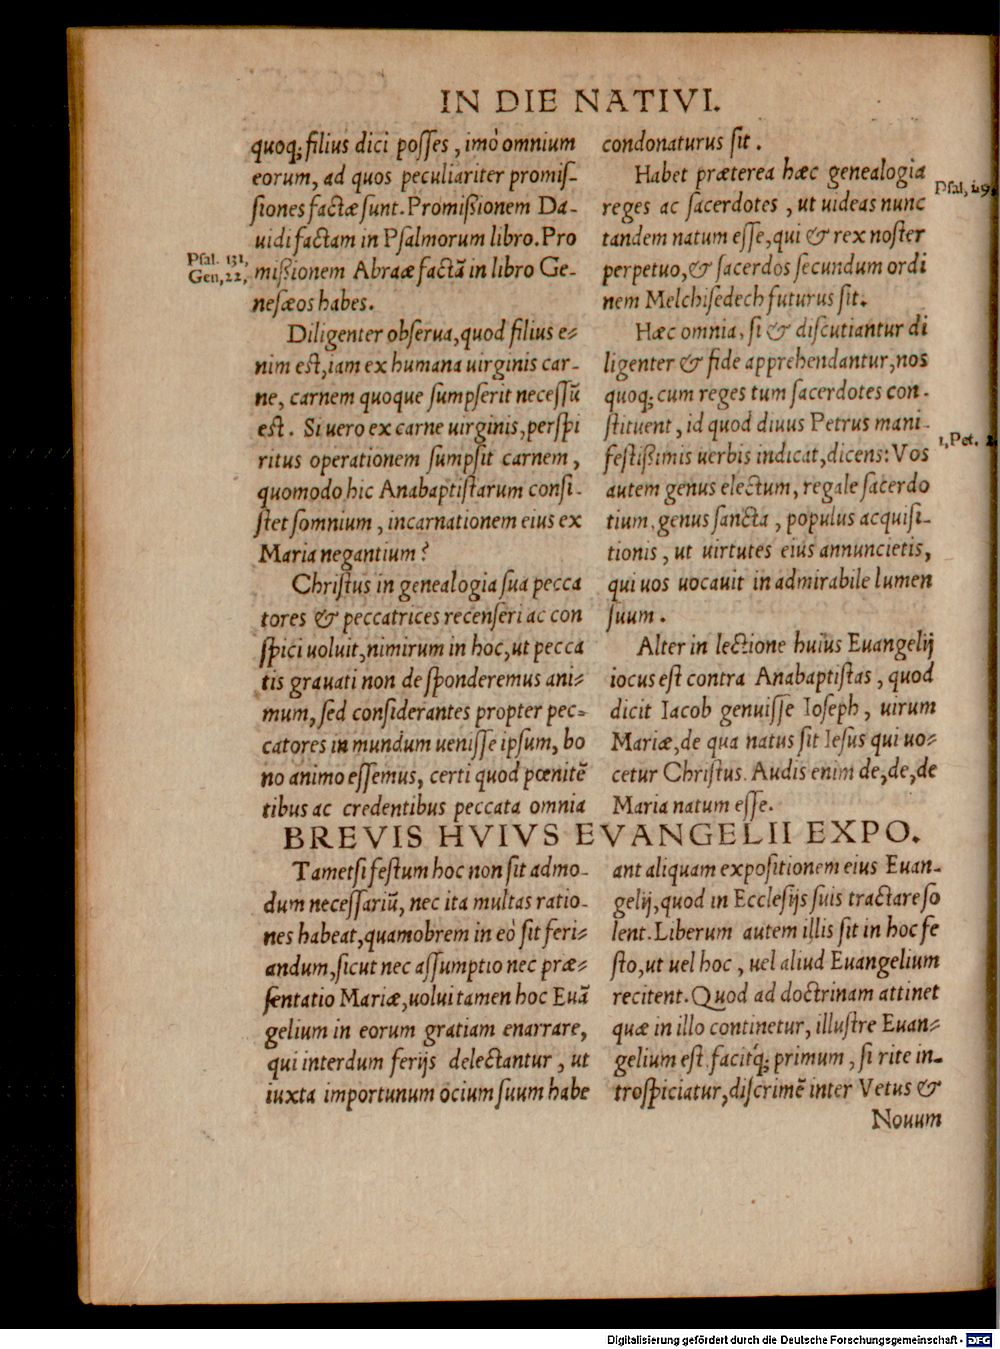 IN DIE NATIVI.
quoq; filius dici posses, imò omnium
eorum, ad quos peculiariter promis-
siones factæ sunt. Promißionem Da-
uidi factam in Psalmorum libro. Pro
mißionem Abraæ factã in libro Ge-
nesæos habes.
Psal. 131,
Gen, 22,
Diligenter obserua, quod filius e-
nim est, iam ex humana uirginis car-
ne, carnem quoque sumpserit necessũ
est. Si uero ex carne uirginis, per spi
ritus operationem sumpsit carnem,
quomodo hic Anabaptistarum consi-
stet somnium, incarnationem eius ex
Maria negantium?
Christus in genealogia sua pecca
tores & peccatrices recenseri ac con
spici uoluit, nimirum in hoc, ut pecca
tis grauati non desponderemus ani-
mum, sed considerantes propter pec-
catores in mundum uenisse ipsum, bo
no animo essemus, certi quod pœnitẽ
tibus ac credentibus peccata omnia
condonaturus sit.
Habet præterea hæc genealogia
reges ac sacerdotes, ut uideas nunc
tandem natum esse, qui & rex noster
perpetuo, & sacerdos secundum ordi
nem Melchisedech futurus sit.
Hæc omnia, si & discutiantur di
ligenter & fide apprehendantur, nos
quoq; cum reges tum sacerdotes con-
stituent, id quod diuus Petrus mani-
festißimis uerbis indicat, dicens: Vos
autem genus electum, regale sacerdo
tium, genus sancta, populus acquisi-
tionis, ut uirtutes eius annuncietis,
qui uos uocauit in admirabile lumen
suum.
1, Pet. 2
Alter in lectione huius Euangelij
iocus est contra Anabaptistas, quod
dicit Iacob genuisse Ioseph, uirum
Mariæ, de qua natus sit Iesus qui uo-
cetur Christus. Audis enim de, de, de
Maria natum esse.
BREVIS HVIVS EVANGELII EXPO.
Tametsi festum hoc non sit admo-
dum necessariũ, nec ita multas ratio-
nes habeat, quamobrem in eò sit feri-
andum, sicut nec assumptio nec præ-
sentatio Mariæ, uolui tamen hoc Euã
gelium in eorum gratiam enarrare,
qui interdum ferijs delectantur, ut
iuxta importunum ocium suum habe
ant aliquam expositionem eius Euan-
gelij, quod in Ecclesijs suis tractare so
lent. Liberum autem illis sit in hoc fe
sto, ut uel hoc, uel aliud Euangelium
recitent. Quod ad doctrinam attinet
quæ in illo continetur, illustre Euan-
gelium est, facitq́; primum, si rite in-
trospiciatur, discrimẽ inter Vetus &
Nouum
Digitalisierung gefördert durch die Deutsche Forschungsgemeinschaft - DFG